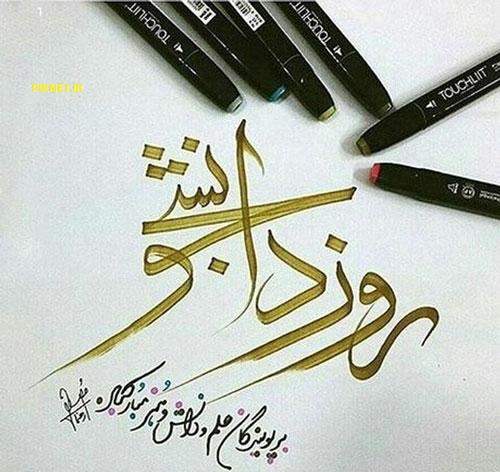 PIKNET.IR
TOUCHLIIT
TOUCHLIIT
TOUCHLIIT
روز دانشجو
بر پویندگان علم و دانش و هنر مبارکباد